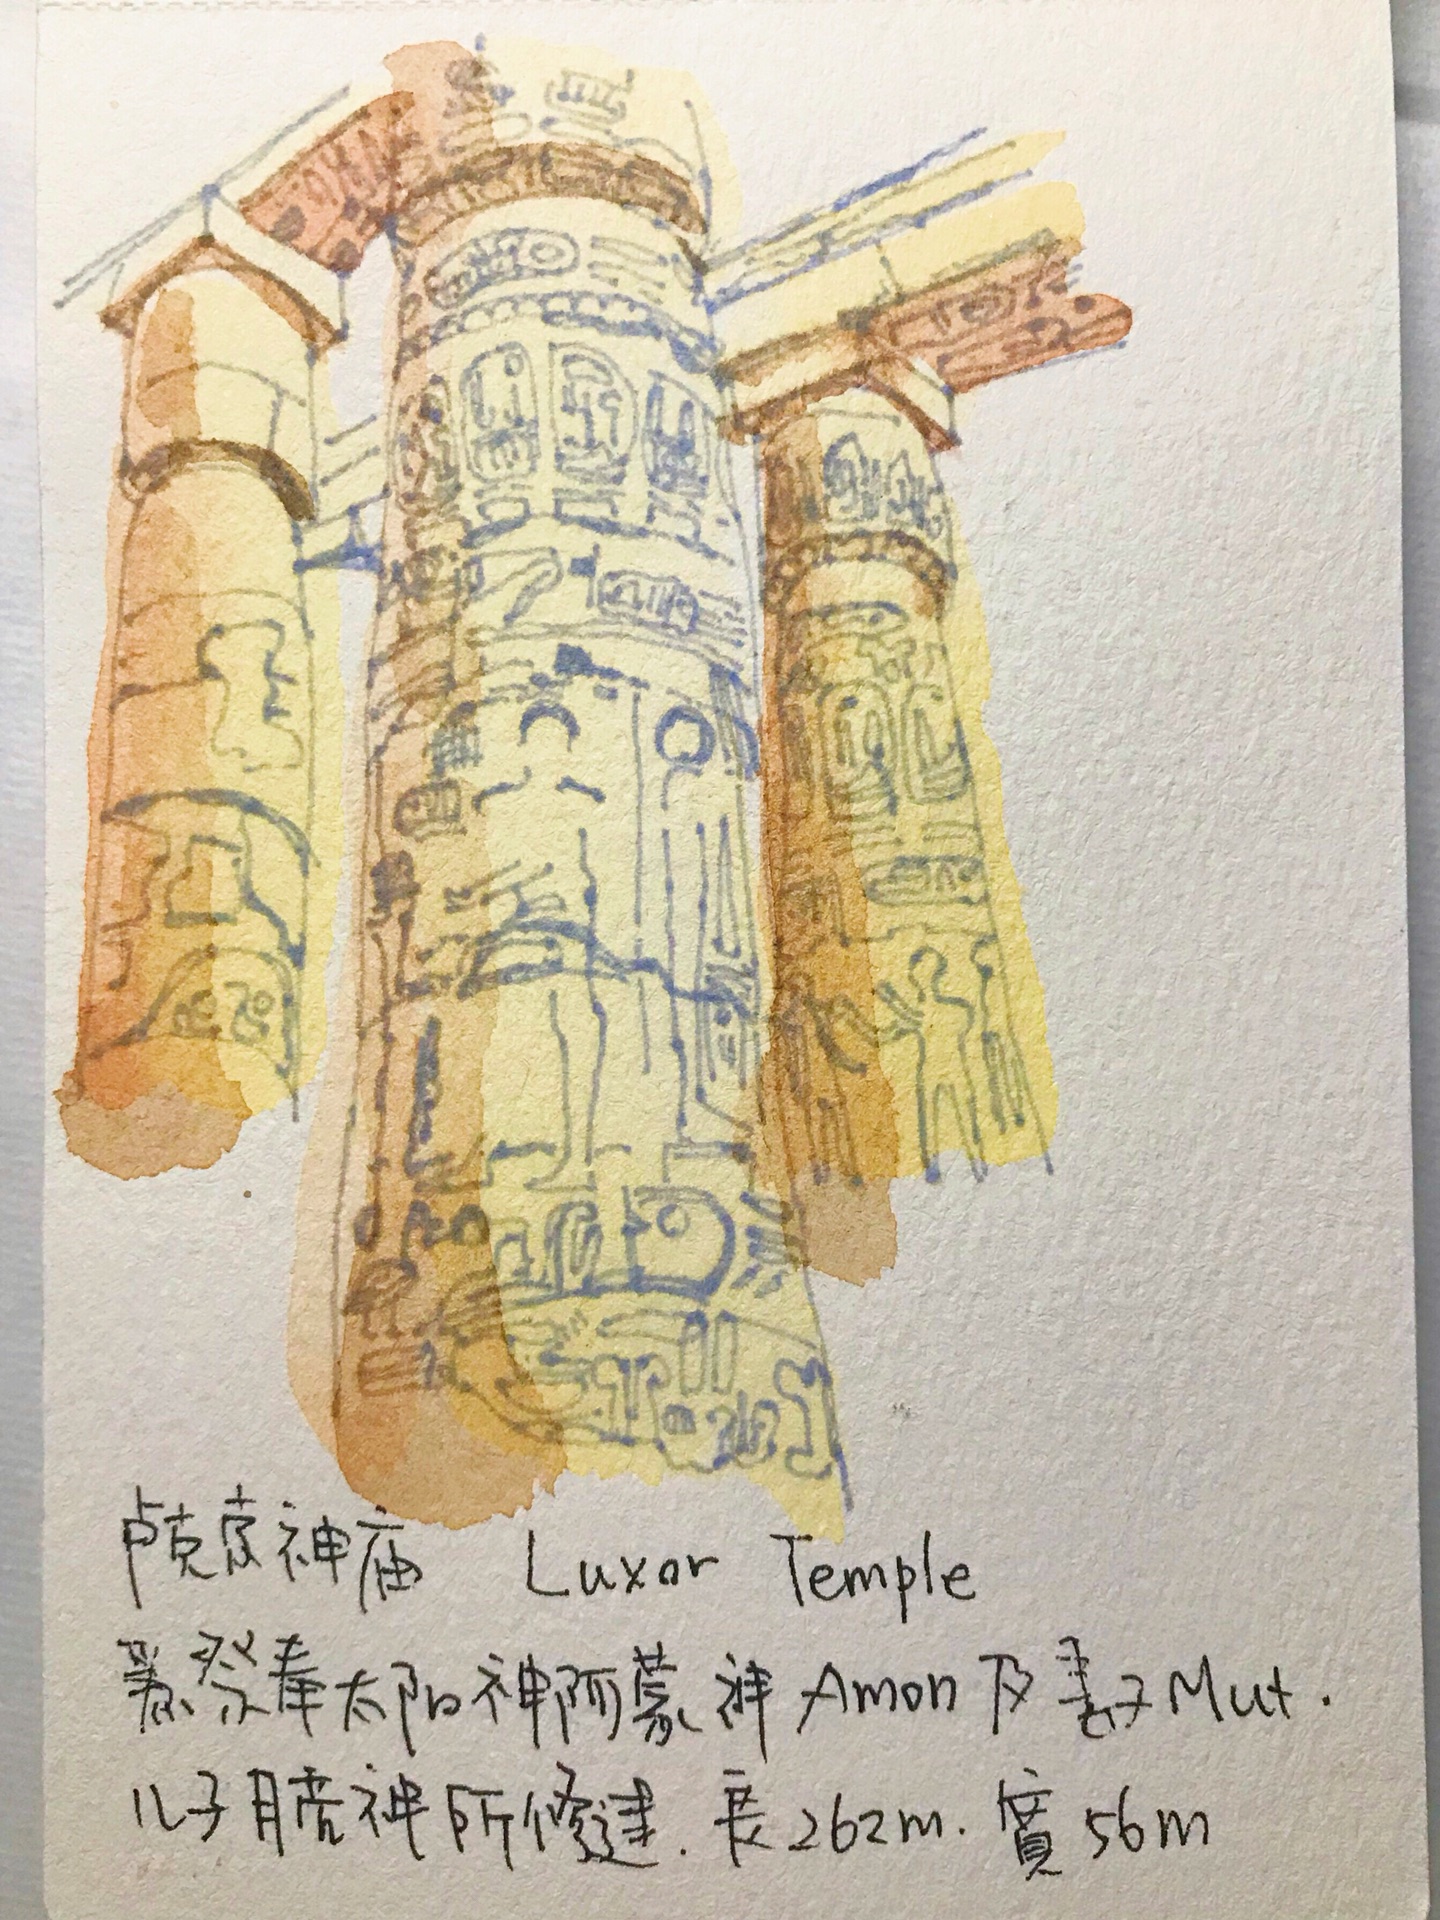 卢克索神庙 Luxor Temple
為祭奉太阳神阿蒙神 Amon 及妻子 Mut.
儿子月亮神所修建. 長262m. 寬56m